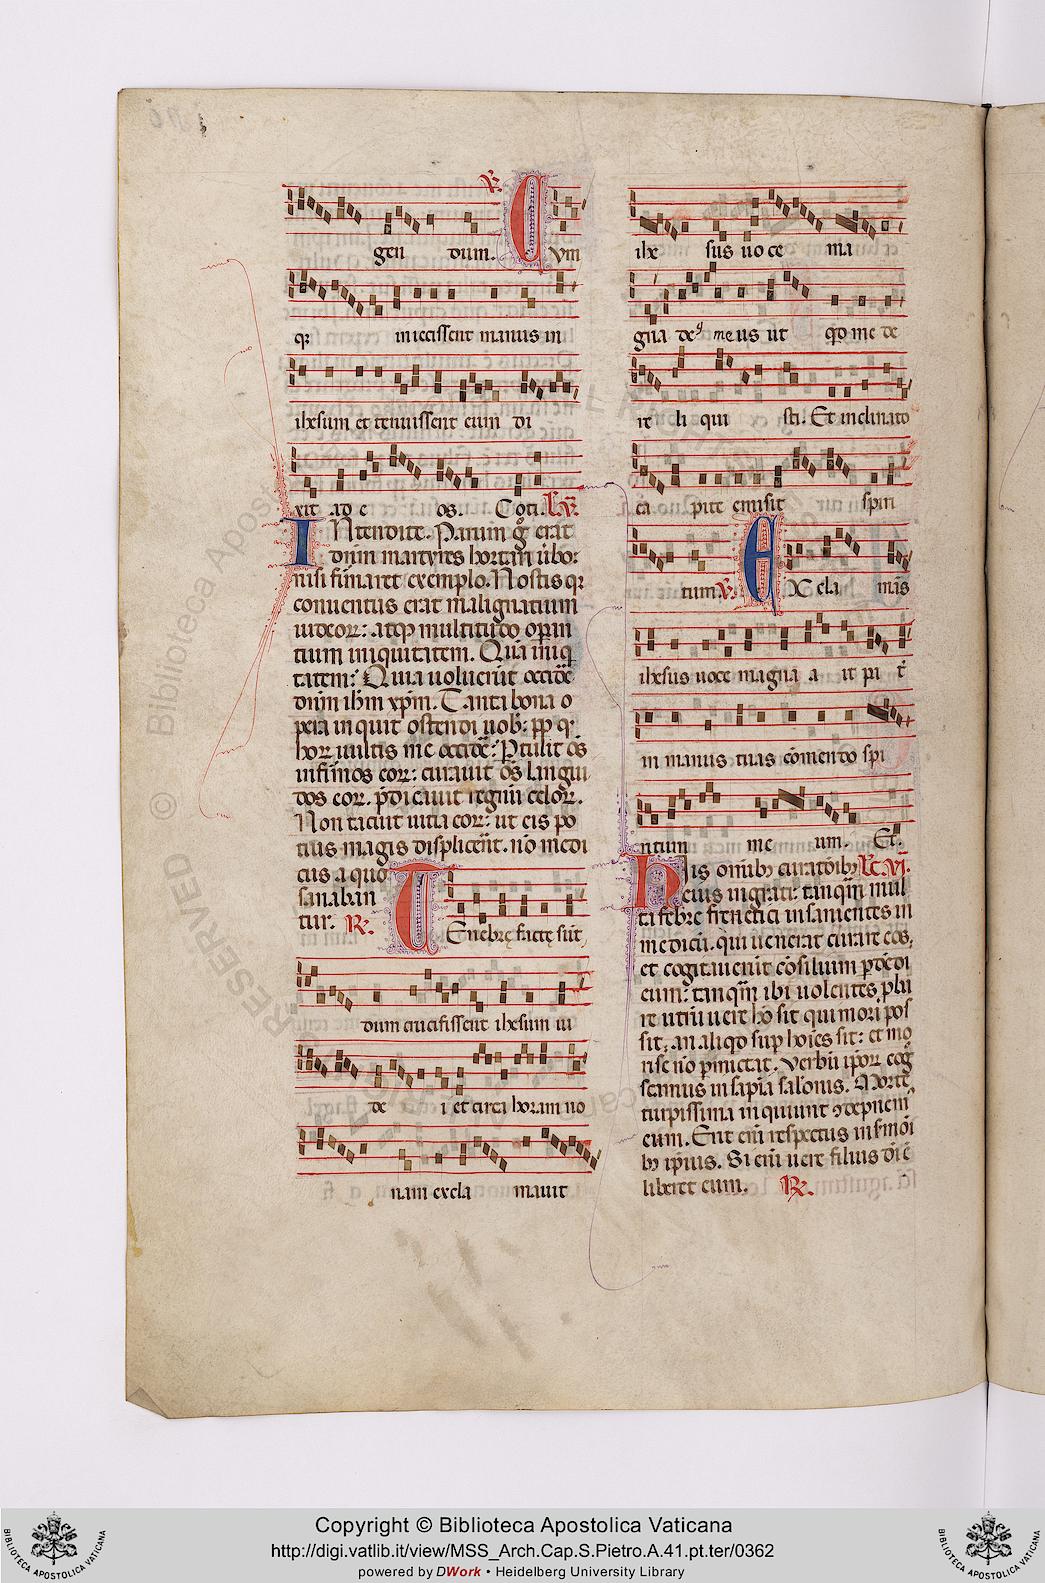 gen dum. ℟. Cum
q; iniecissent manus in
ihesum et tenuissent eum di
xit ad e os. Coti. Lc̄. v.
INtendite. Natum g̊ erat
dn̄m martyres hortari ūbor
nisi firmaret exemplo. Nostis q;
conuentus erat malignatium
iudeoꝝ: atqꝫ multitudo opan
tium iniquitatem. Quā iniq̄
tatem: Quia uoluerūt occide
dn̄m ihm̄ xpm̄. Tanta bona o
pera inquit ostendi uob: pp q
hoꝝ uultis me occide: Ptulit ōs
infirmos eoꝝ: curauit ōs langui
dos eoꝝ. p̄dicauit regnū celoꝝ.
Non tacuit uitia eoꝝ: ut eis po
tius magis displicēt. nō medi
cus a quo
sanaban
tur. ℟. TEnebrę factę sūt,
dum crucifissent ihesum iu
de i et circa horam no
nam excla mauit
ihe sus uo ce ma
gna deꝰ me us ut qͦd me de
re li qui sti. Et inclinato
ca pite emisit spiri
tum. ℣. EXcla mās
ihesus uoce magna a it pa t̄
in manus tuas cōmendo spi
ritum me um. Et.
hIs omībꝫ curatōibꝫ Lc̄. vi.
eius ingrati: tanqm̄ mul
ta febre frenetici insanientes in
medicū. qui uenerat curare eos,
et cogitauerūt cōsilium p̄dendi
eum: tanqm̄ ibi uolentes pba
re utrū uere hō sit qui mori pos
sit, an aliqͦd sup hoīes sit: et mo
ri se nō pmittat. Verbū ipoꝝ cog̊
scimus in sapīa salōnis. Morte,
turpissima inquiunt ꝯdēpnem̄
eum. Erit eni respectus in smōi
bꝫ ipsius. Si eni uere filius dī ē
liberet eum. ℟.
Copyright © Biblioteca Apostolica Vaticana
http://digi.vatlib.it/view/MSS_Arch.Cap.S.Pietro.A.41.pt.ter/0362
powered by DWork • Heidelberg University Library